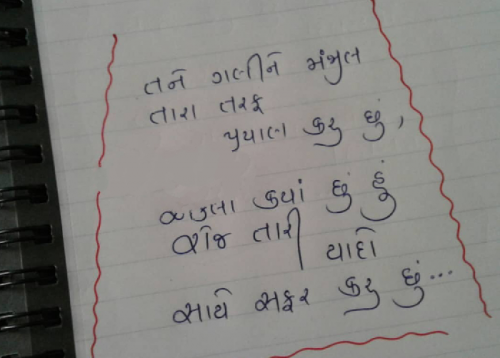 તને ગલીને મંજુલ
તારા તરફ
પ્રયાણ કરુ છું,
એકલા કયાં છું હું
રોજ તારી યાદો
સાથે સફર કરુ છું...